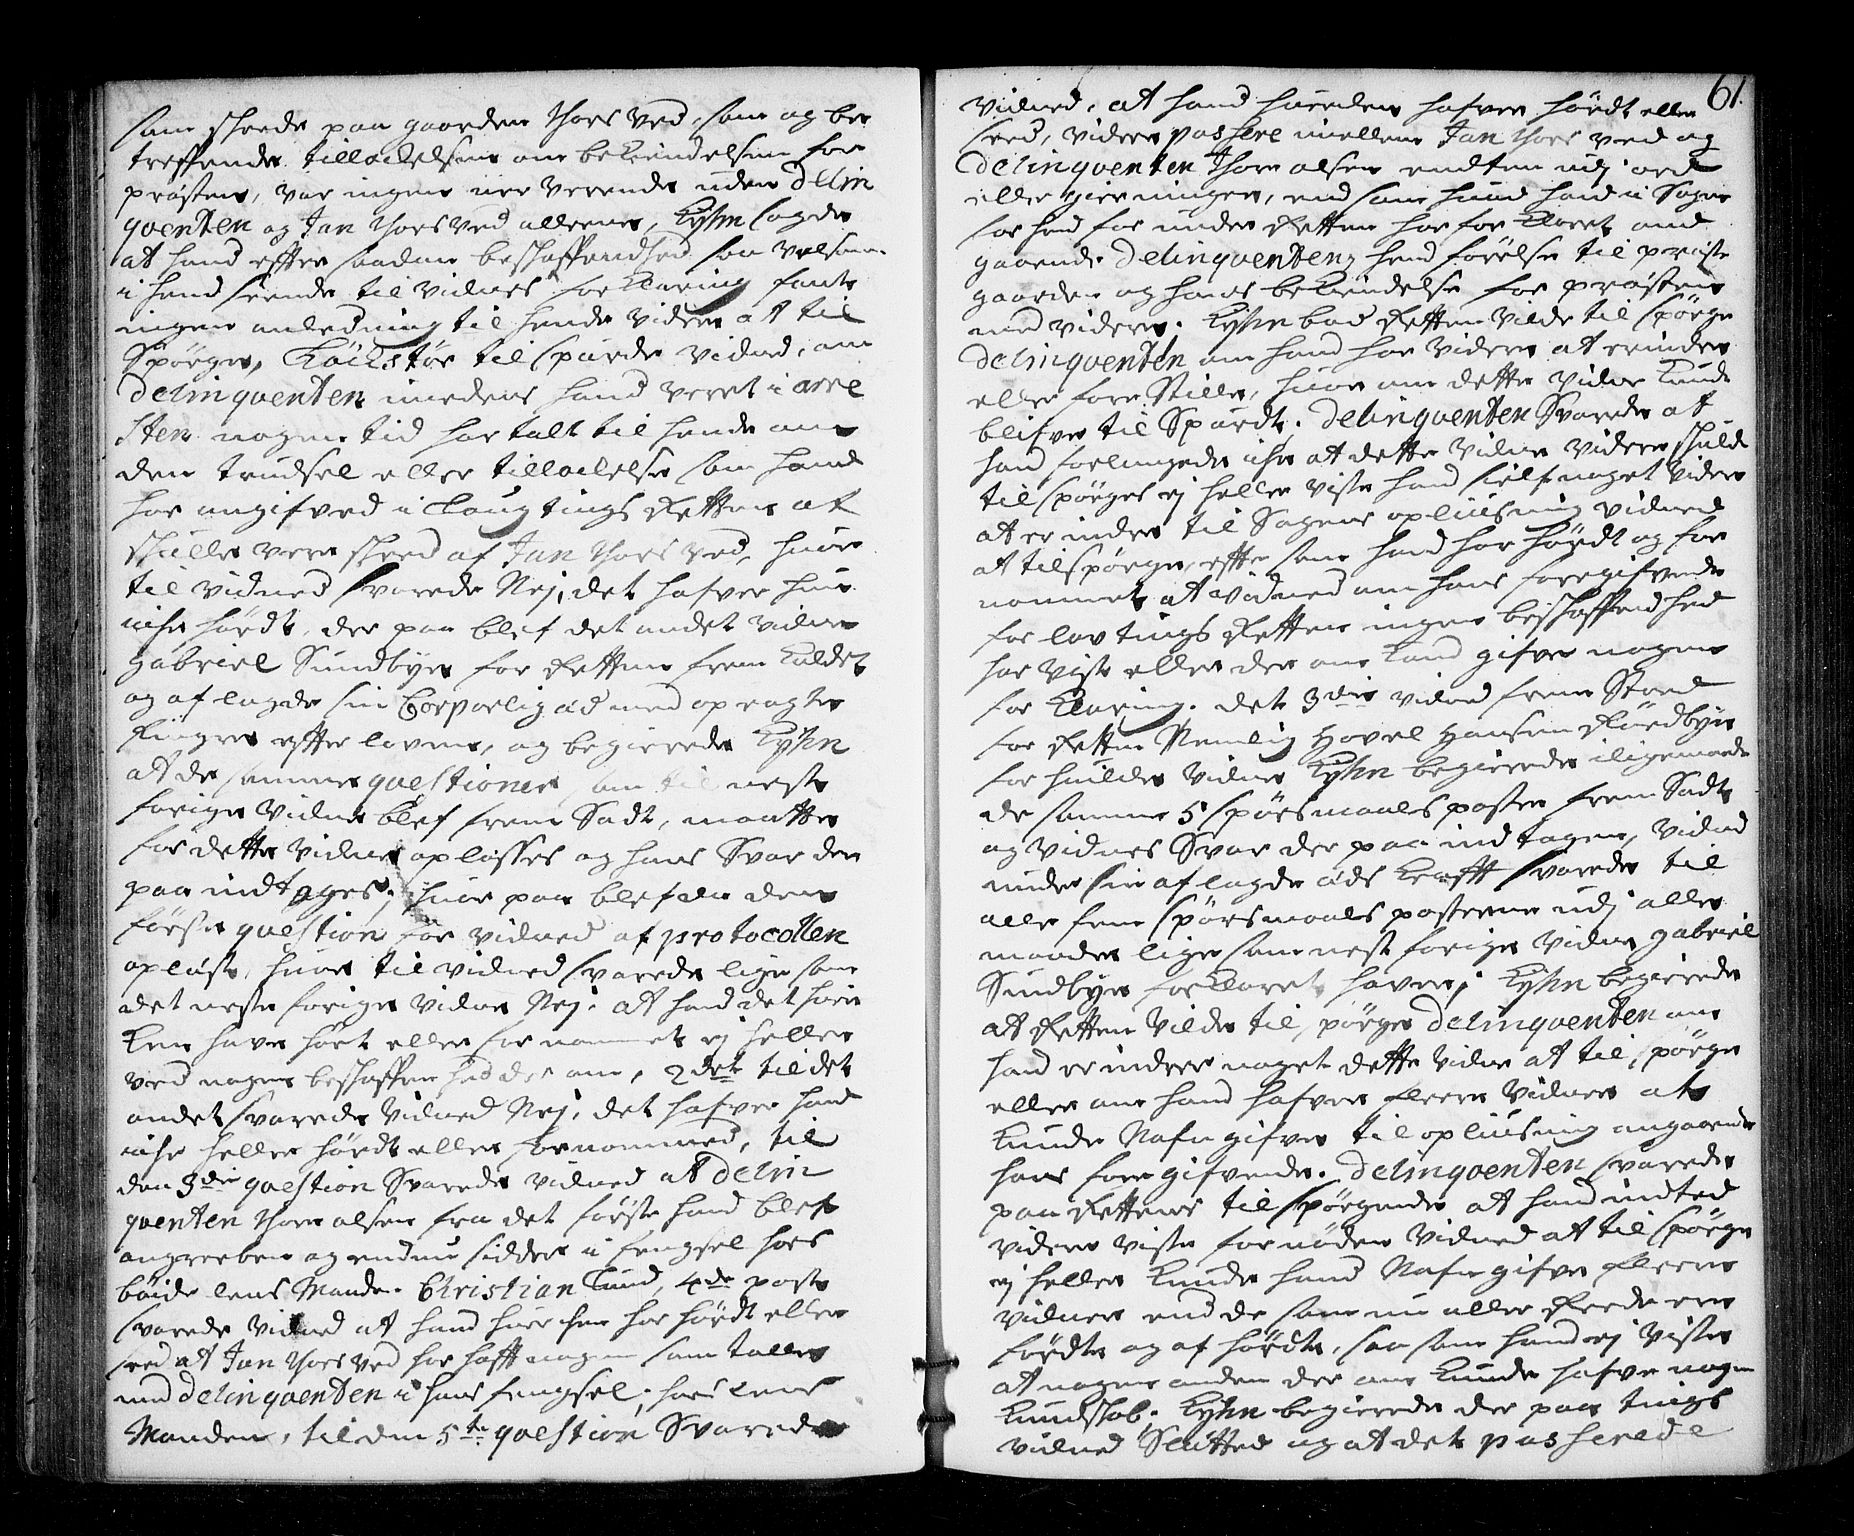 som skeede paa gaarden Thorsved, som og be
treffende tillockelsen om bekiendelsen for
prosten, var ingen nerverende uden Delin
qventen og Jan Thorsved allerene, Kyhn sagde
at hand effter saadan beskaffendhed saa velsom
i hend seende til vidnes forklaring fant
ingen anledning til hende videre at til
Spörges, Köckstør tilspurde vidned, om
Delinqventen imedens hand veret i arre
sten nogen tid har talt til hende om
den trudsel eller tillockelse som hand
har angifved i Laugtings Retten at
skulle vere skeed af Jan Thorsved, hvor
til vidned svarede Nej, det hafver hun
iche hördt, der paa blef det andet vidne
Gabriel Sundbye for Retten frem kaldet
og aflagde sin Corporlig æd med opragte
Fingre effter loven, og begierede Kyhn
at de samme qvestioner som til neste
forige vidne blef frem Sadt, maatte
for dette vidne oplæsses og hans Svar der
paa indtages, hvor paa blef da den
förste qvestion for vidned af protocollen
oplæst, hvor til vidned svarede lige som
det neste forige vidne Nej. at hand det hver
ken have hört eller fornommet ej heller
ved nogen beskaffenhed der om, 2det til det
andet svarede vidned Nej, det hafver hand
iche heller hördt eller fornommed, til
den 3die qvestion Svarede vidned at Delin
qventen Thor olsen fra det förste hand blef
angreeben og endnu sidder i fengsel hos
böide lens Mand Christian Lund, 4de post
svarede vidned at hand hver chen har hördt eller
seed at Jan Thorsved har hafft nogen samtalle
med Delinqventen i hans fengsel, hos lens
Manden, til den 5te qvestion Svarede
61.
vidned, at hand hverken hafver hördt eller
seed, videre passere imellem Jan Thorsved og
Delinqventen Thor olsen endten udj ord
eller gierninger, end som hvad hand i Sagen
forhend for under Retten har forklaret and
gaaende Delinqventens hend förelse til præste
gaarden og hans bekiendelse for prosten
med videre. Kyhn bad Retten vilde tilspörge
Delinqventen om hand har videre at erindre
eller fore Stille, hvor om dette vidne kunde
blifve til Spurdt. Delinqventen Svarede at
hand forlangede iche at dette vidne videre skulde
tilspörges ej heller viste hand sielf noget videre
at erindre til Sagens opliusning vidned
at tilspörge, effter som hand har hördt og for
nommet at vidned om hans foregifvende
for lavtings Retten ingen beskaffendhed
har vist eller der om kand gifve nogen
forklaring. det 3die vidne frem Stod
for Retten Nemlig Hovel Hansen Rördbye
for hvilche vidne Kyhn begierede iligemaade
de samme 5 spörsmaals poster frem Sadt
og vidnes Svar der paa indtagen, vidned
under sin aflagde æds Krafft svarede til
alle fem spörsmaals posterne udj alle
maader lige som nest forige vidne Gabriel
Sundbye forklaret haver, Kyhn begierede
at Retten vilde tilspörge Delinqventen om
hand erindrer noget dette vidne at tilspörge
eller om hand hafver fleere vidner at
kunde Nafn gifve til opliusning angaaende
hans foregifvende. Delinqventen svarede
paa Rettens tilspörgende at hand indted
videre viste fornöden vidned at tilspörge
ej heller kunde hand Nafn gifve fleere
vidner end de som nu allerede ere
födte og afhördte, saa som hand ej viste
at nogen anden der om kunde hafve nogen
kundskab. Kyhn begierede der paa tings
vidned Sluttet og at det passerede